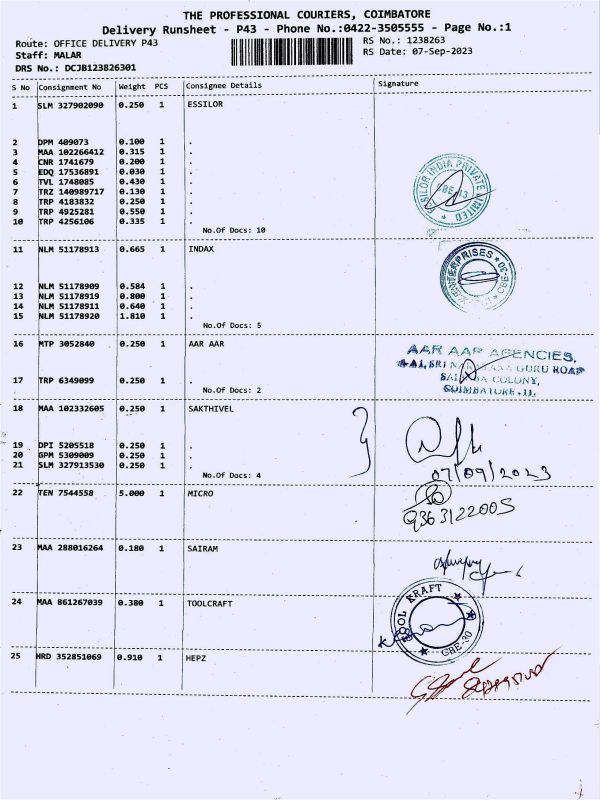 THE PROFESSIONAL COURIERS, COIMBATORE
Delivery Runsheet - P43 - Phone No.:0422-3505555 - Page No.:1
Route: OFFICE DELIVERY P43
RS No.: 1238263
Staff: MALAR
RS Date: 07-Sep-2023
DRS No.: DCJB123826301
S No Consignment No Weight PCS Consignee Details Signature
1 SLM 327902090 0.250 1 ESSILOR
2 DPM 409073 0.100 1 .
3 MAA 102266412 0.315 1 .
4 CNR 1741679 0.200 1 .
5 EDQ 17536891 0.030 1 .
6 TVL 1748085 0.430 1 .
7 TRZ 140989717 0.130 1 .
8 TRP 4183832 0.250 1 .
9 TRP 4925281 0.550 1 .
10 TRP 4256106 0.335 1 .
No.Of Docs: 10
ESSILOR INDIA PRIVATE LIMITED
11 NLM 51178913 0.665 1 INDAX
ENTERPRISES CBE-30
12 NLM 51178909 0.584 1 .
13 NLM 51178919 0.800 1 .
14 NLM 51178911 0.640 1 .
15 NLM 51178920 1.810 1 .
No.Of Docs: 5
16 MTP 3052840 0.250 1 AAR AAR
AAR AAR AGENCIES,
GURU ROAD
COLONY,
COIMBATORE-11.
17 TRP 6349099 0.250 1 .
No.Of Docs: 2
18 MAA 102332605 0.250 1 SAKTHIVEL
19 DPI 5205518 0.250 1 .
20 GPM 5309009 0.250 1 .
21 SLM 327913530 0.250 1 .
No.Of Docs: 4
07/09/2023
22 TEN 7544558 5.000 1 MICRO
9363122005
23 MAA 288016264 0.180 1 SAIRAM
24 MAA 861267039 0.380 1 TOOLCRAFT
TOOL KRAFT CBE-30
25 HRD 352851069 0.910 1 HEPZ